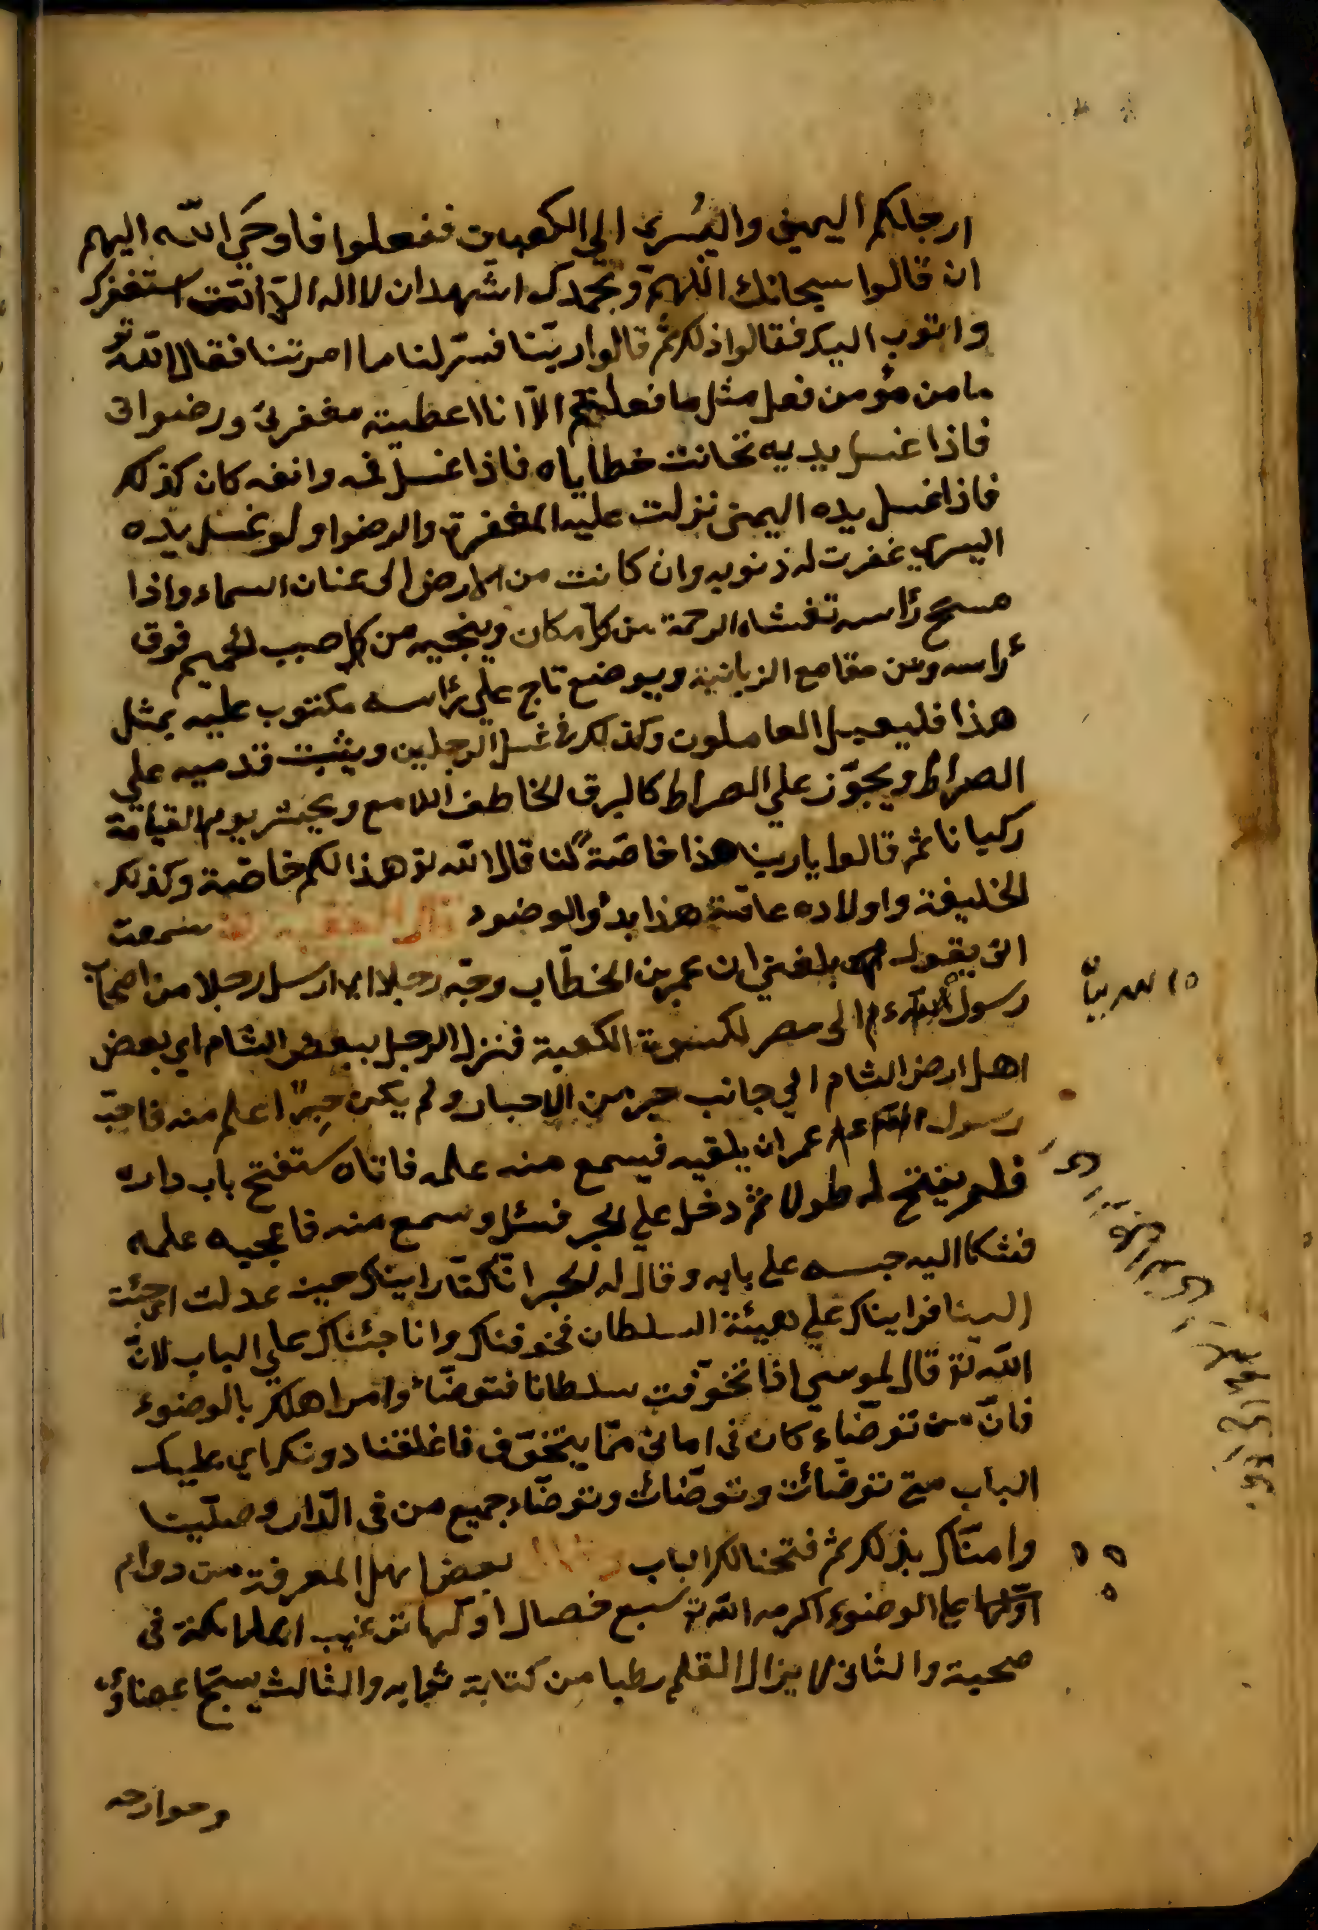 ارجلكم اليمنى واليُسرى الي الكعبين ففعلوا فاوحَي الله اليهم
ان قالوا سبحانك اللهمّ وبحمدك اشهد ان لا اله الا انت استغفرك
واتوب اليك فقالوا ذلك ثمّ قالوا ربّنا فسّر لنا ما امرتنا فقال الله تع
ما من مؤمن فعل مثل ما فعلتم الّا انا اعطيته مغفرتى ورضوانى
فاذا غسل يديه تحانت خطاياه فاذا غسل فمه وانفه كان كذلك
فاذا غسل يده اليمنى نزلت عليه المغفرة والرضوا ولو غسل يده
اليسرى غفرت له ذنوبه وان كانت من الارض الى عنان السماء واذا
مسح رٔاسه تغشاه الرحمة من كل مكان وينجيه من كل صبب الحميم فوق
رٔاسه ومن مقامع الزبانية ويوضع تاج علي رٔاسه مكتوب عليه بمثل
هذا فليعمل العاملون وكذلك فى غسل الرجلين ويثبت قدميه علي
الصراط ويجوّز علي الصراط كالبرق الخاطف اللامع ويحشر يوم القيامة
ركبانا ثم قالوا يا ربنا هذا خاصّةً لنا قال الله تع هذا لكم خاصّة وكذلك
الخليفة واولاده عامّة هذا بدٔو الوضوء قال الفقيه سمعت
ابى يقول بلغني ان عمر بن الخطّاب وجّه رجلا اى ارسل رجلا من اصحاب
رسول الله ءم الى مصر لكسوة الكعبة فنزل الرجل ببعض الشام اي بعض
اهل ارض الشام الي جانب حبر من الاحبار ولم يكن حِبرًا اعلم منه فاحبّ
رسول عمر ان يلقيه فيسمع منه علمه فاتاه ستفتح باب داره
فلم يفتح له طولا ثمّ دخل علي الحبر فسئل وسمع منه فاعجبه علمه
فشكا اليه حبسه على بابه وقال له الحبر انّا كنّا رايناك حين عدلت اى جئت
الينا فرايناك علي هيئة السلطان فخوفناك وانا حبسناك علي الباب لانّ
الله تع قال لموسي اذا تخوّفت سلطانا فتوضّأ وامر اهلك بالوضوء
فانّ من توضّاء كان فى امانى ممّا يتخوّف فاغلقنا دونك اي عليك
الباب حتى توضّات وتوضّأت وتوضّاء جميع من فى الدّار وصلّينا
وامنّاك بذلك ثمّ فتحنا لك الباب وقال بعض اهل المعرفة من دوام
علي الوضوء اكرمه الله تع سبع خصال اوّلها ترغيب الملائكة فى
صحبة والثانى لا يزال القلم رطبا من كتابة ثوابه والثالث يسبّح اعضاؤه
وجوارحه